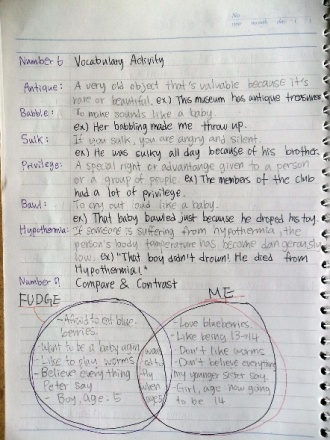 Number 6 Vocabulary Activity
Antique: A very old object that's valuable because it's
rare or beautiful. ex) This museum has antique treasures
Babble: To make sounds like a baby
ex) Her babbling made me throw up.
Sulk: If you sulk, you are angry and silent
ex) He was sulky all day because of his brother.
Privilege: A special right or advantange given to a person
or a group of people. ex) The members of the club
had a lot of privilege.
Bawl: To cry out loud like a baby.
ex) That baby bawled just because he droped his toy.
Hypothermia: If someone is suffering from hypothermia, the
person's body temperature has became dangerously
low. ex) "That boy didn't drown! He died from
Hypothermia!"
Number 7 Compare & Contrast
FUDGE
ME
- Afraid to eat blue-
berries.
- Want to be a baby again
- Like to play worms
- Believe everything
Peter say
- Boy, age: 5
fly
when
age 5
- Love blueberries
- Like being 13~14
- Don't like worms
- Don't believe everything
my younger sister say
- Girl, age: now going
to be 14